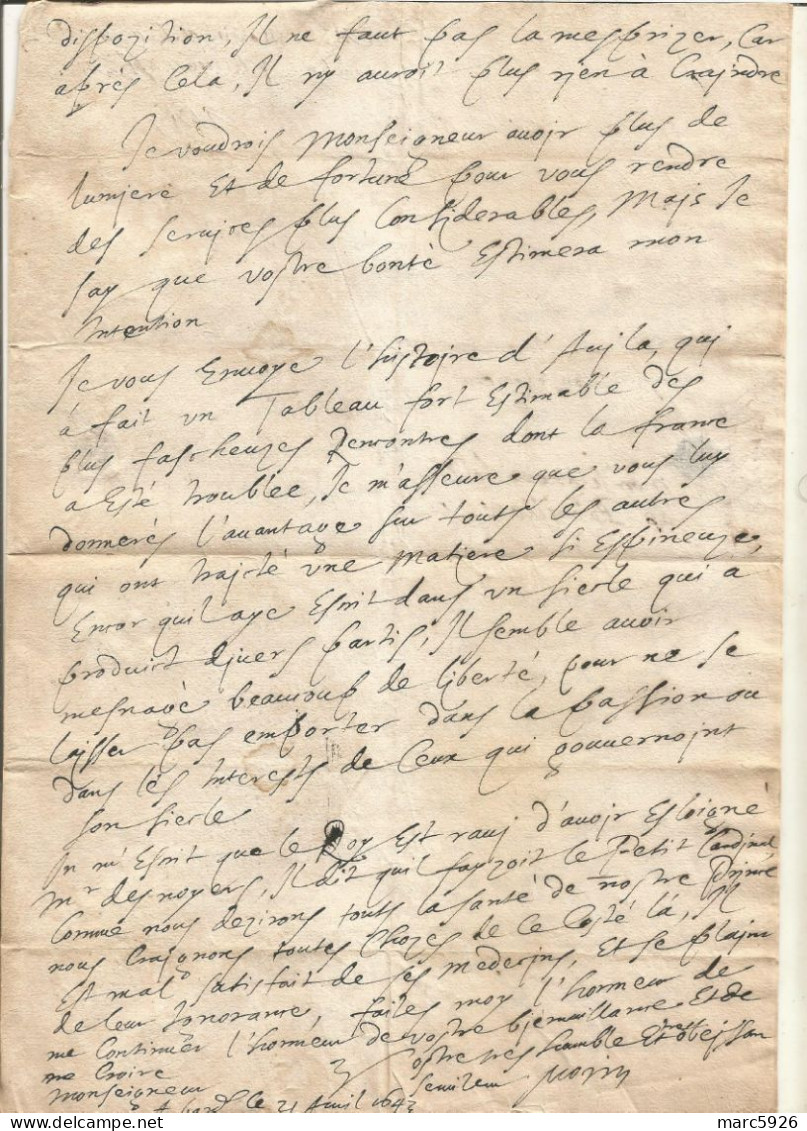 dispozition, Il ne faut pas la mesprizer, Car
aprés Cela, Il ny auroit plus rien à Craindre
Je voudrois Monseigneur avoir plus de
lumiere Et de fortune pour vous rendre
des seruices plus Considerables, Mais Je
say que vostre bonté Estimera mon
Intention
Je vous Envoye l'histoire d'Auila, qui
à fait un Tableau fort Estimable des
plus fascheuzes Rencontres dont la france
a Esté troublée, Je m'asseure que vous luy
donnerés l'auantage sur touts les autres
qui ont traicté vne matiere si Espineuze,
Encor quil aye Escrit dans un siecle qui a
produict diuers partis, Il semble auoir
mesnagé beaucoup de liberté, pour ne se
laisser pas emporter dans la passion ou
dans les Interests de Ceux qui gouuernoint
son siecle
On m'Escrit que le Roy Est rauj d'auoir Esloigné
Mr des noyers, Il dit quil fayzoit le Petit Cardinal
Comme nous dezirons touts la santé de nostre Prince
nous Craignons toutes Chozes de Ce Costé là, Il
Est mal satisfait de ses medecins, Et se plaint
de leur Ignorance, faites moy l'honneur de
me Continuer l'honneur de vostre bienueillance Et de
me Croire
Monseigneur
Vostre tres humble Et obeissan
seruiteur
le 21 Auril 1643